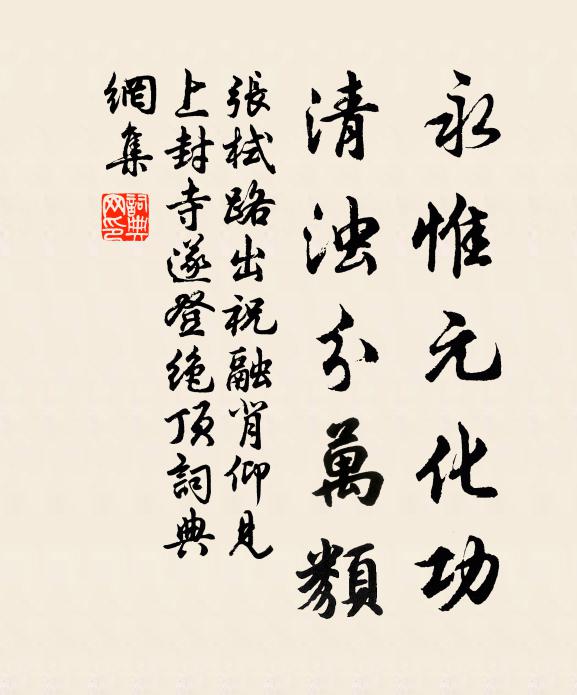 永惟元化功
清浊分萬類
張栻路出祝融肖仰見
上封寺遂登绝顶詞典
網集
詞典网印